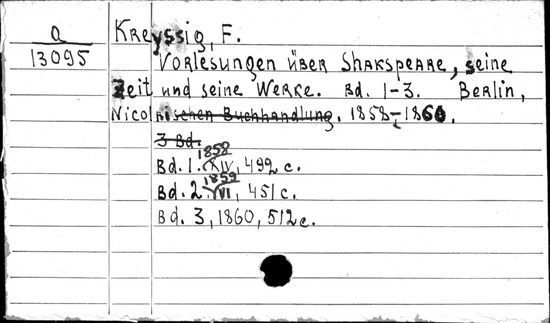 a
13095
Kreyssig, F.
Vorlesungen über Shakspeare, seine
Zeit und seine Werke. Bd. 1-3. Berlin,
Nicolaischen Buchhandlung, 1858-1860.
3 Bd.
1858
Bd. 1. XIV, 492 c.
1859
Bd. 2. VI, 451 c.
Bd. 3, 1860, 512 c.